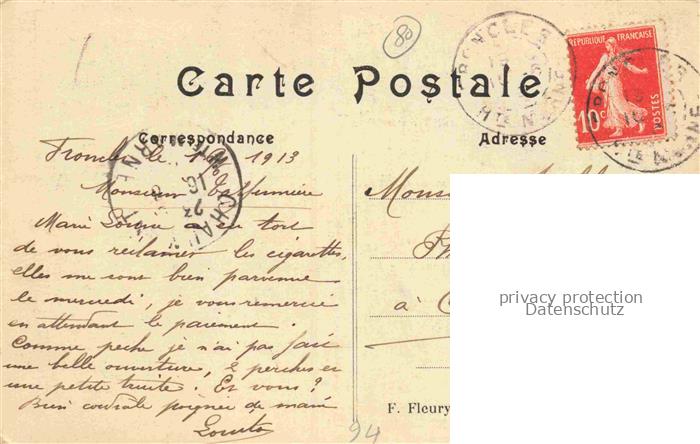 80
Carte Postale
RÉPUBLIQUE FRANÇAISE
10c
POSTES
Correspondance
Adresse
le 1913
Monsieur
Marie Louise a eu tort
de vous réclamer les cigarettes,
elles me sont bien parvenue
le mercredi, je vous remercie
en attendant le paiement.
Comme peche je n'ai pas fait
une belle ouverture, 2 perches et
une petite truite. Et vous?
Bien cordiale poignée de main
à
privacy protection
Datenschutz
F. Fleury
94